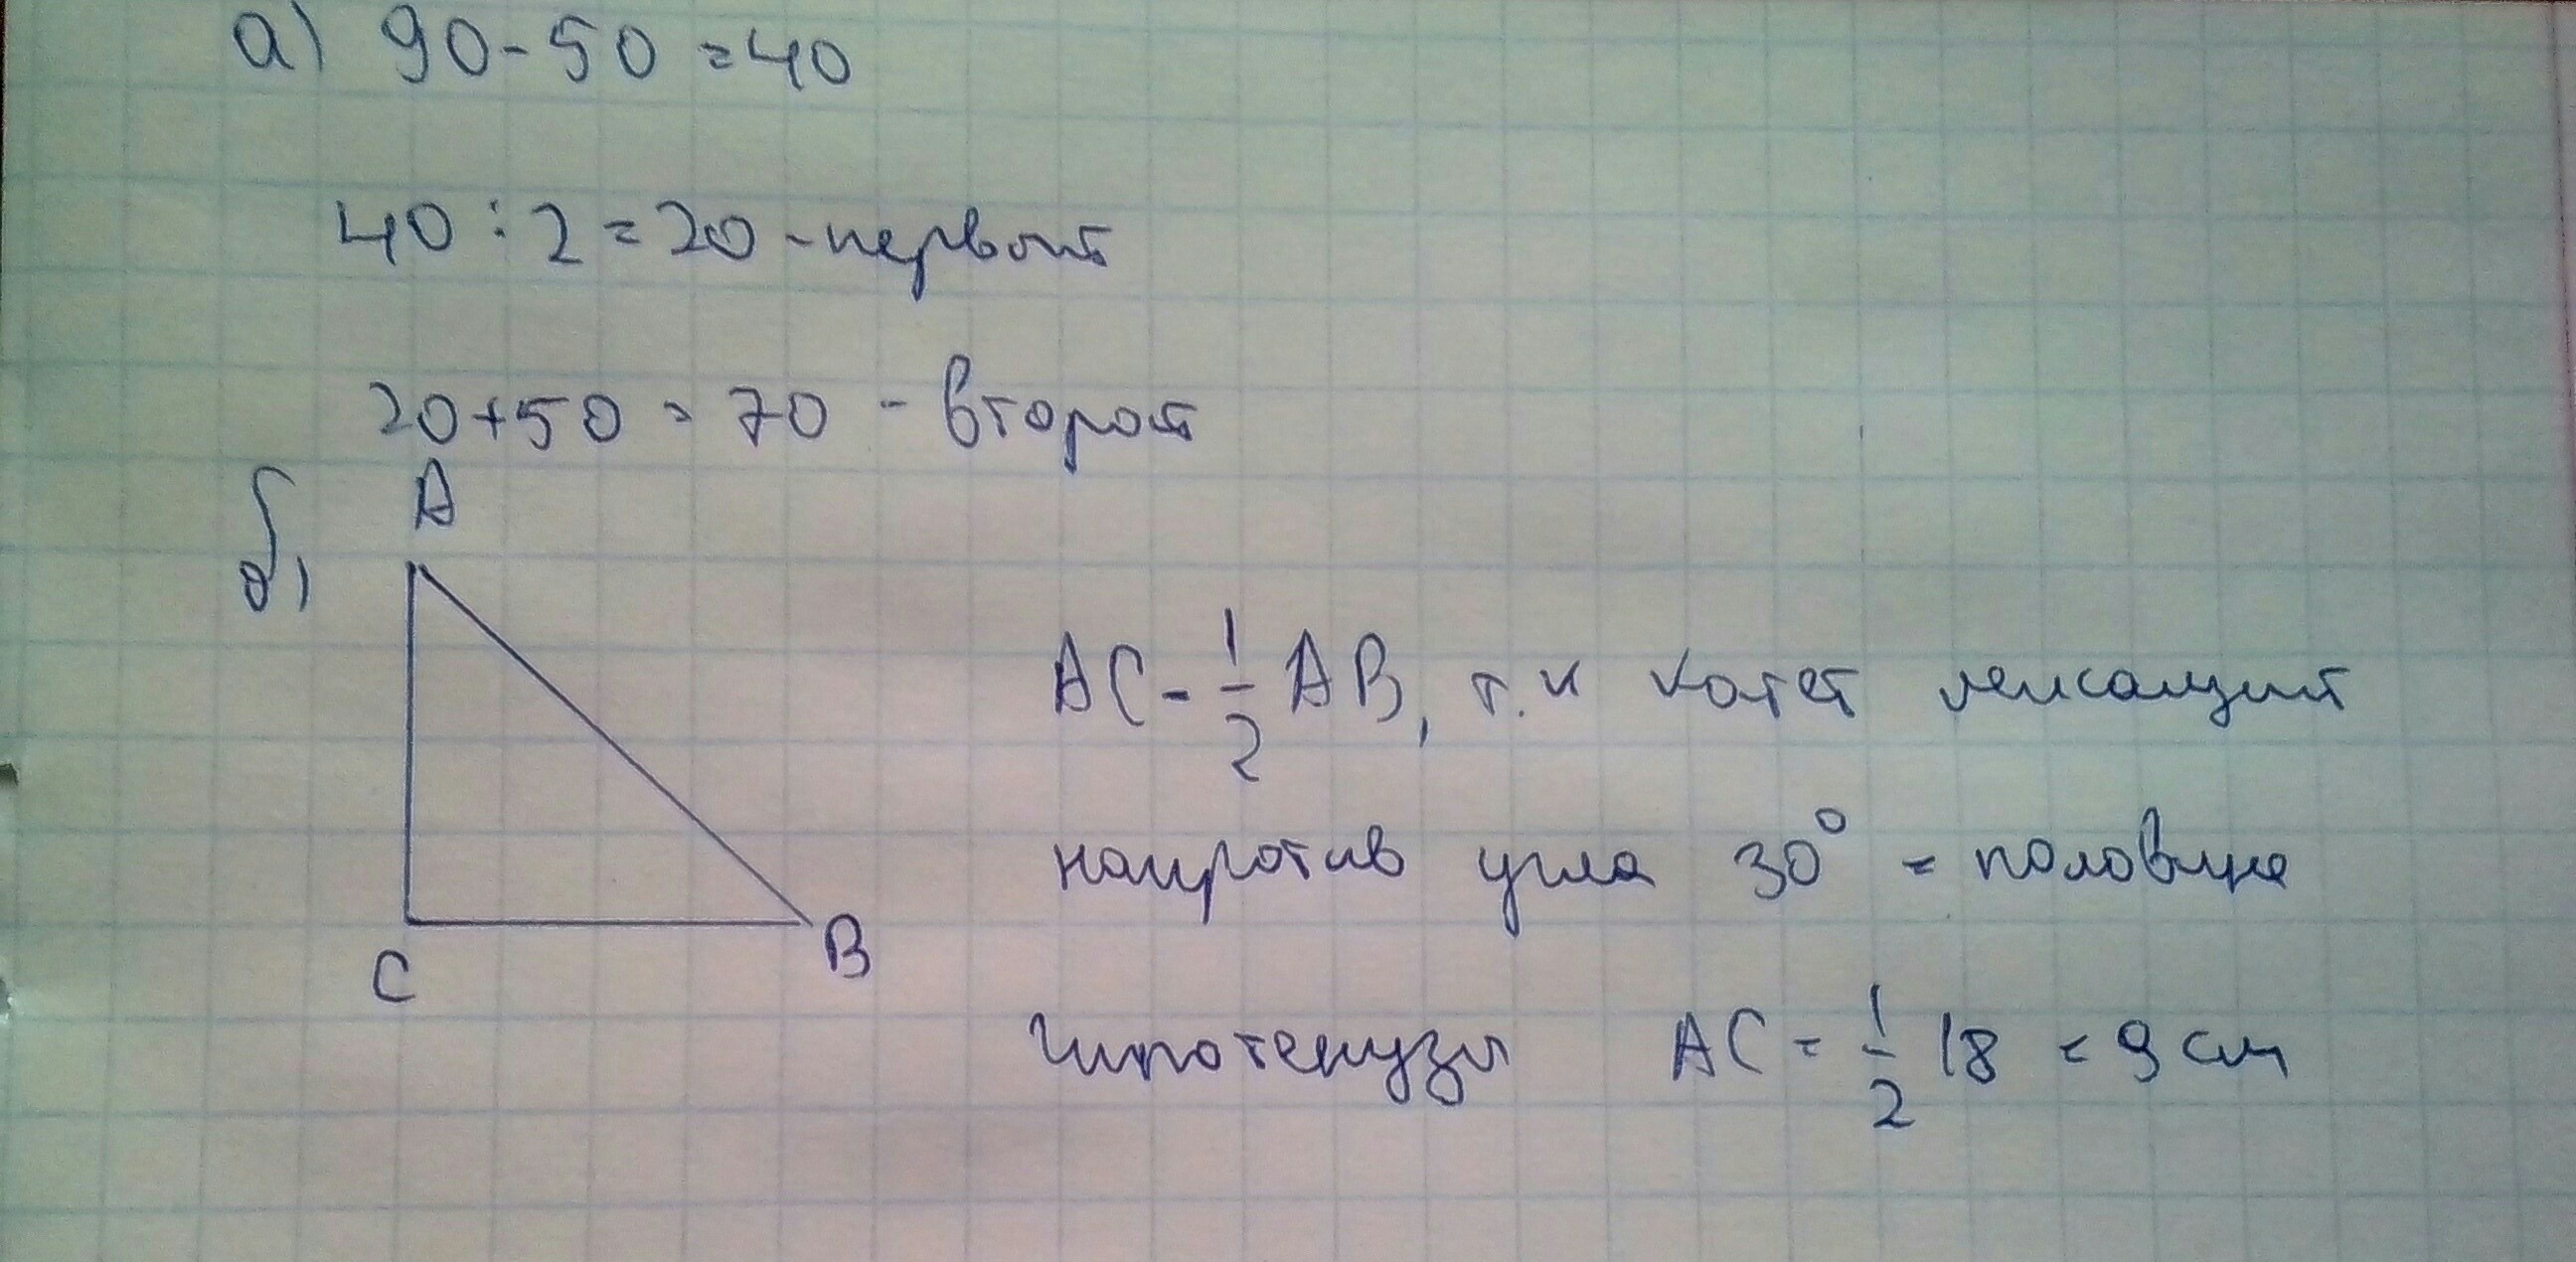 а) 90-50=40
40:2=20-первый
20+50=70-второй
б)
A
C
B
AC=1/2 AB, т.к катет лежащий
напротив угла 30°=половине
гипотенузы AC=1/2 18=9см